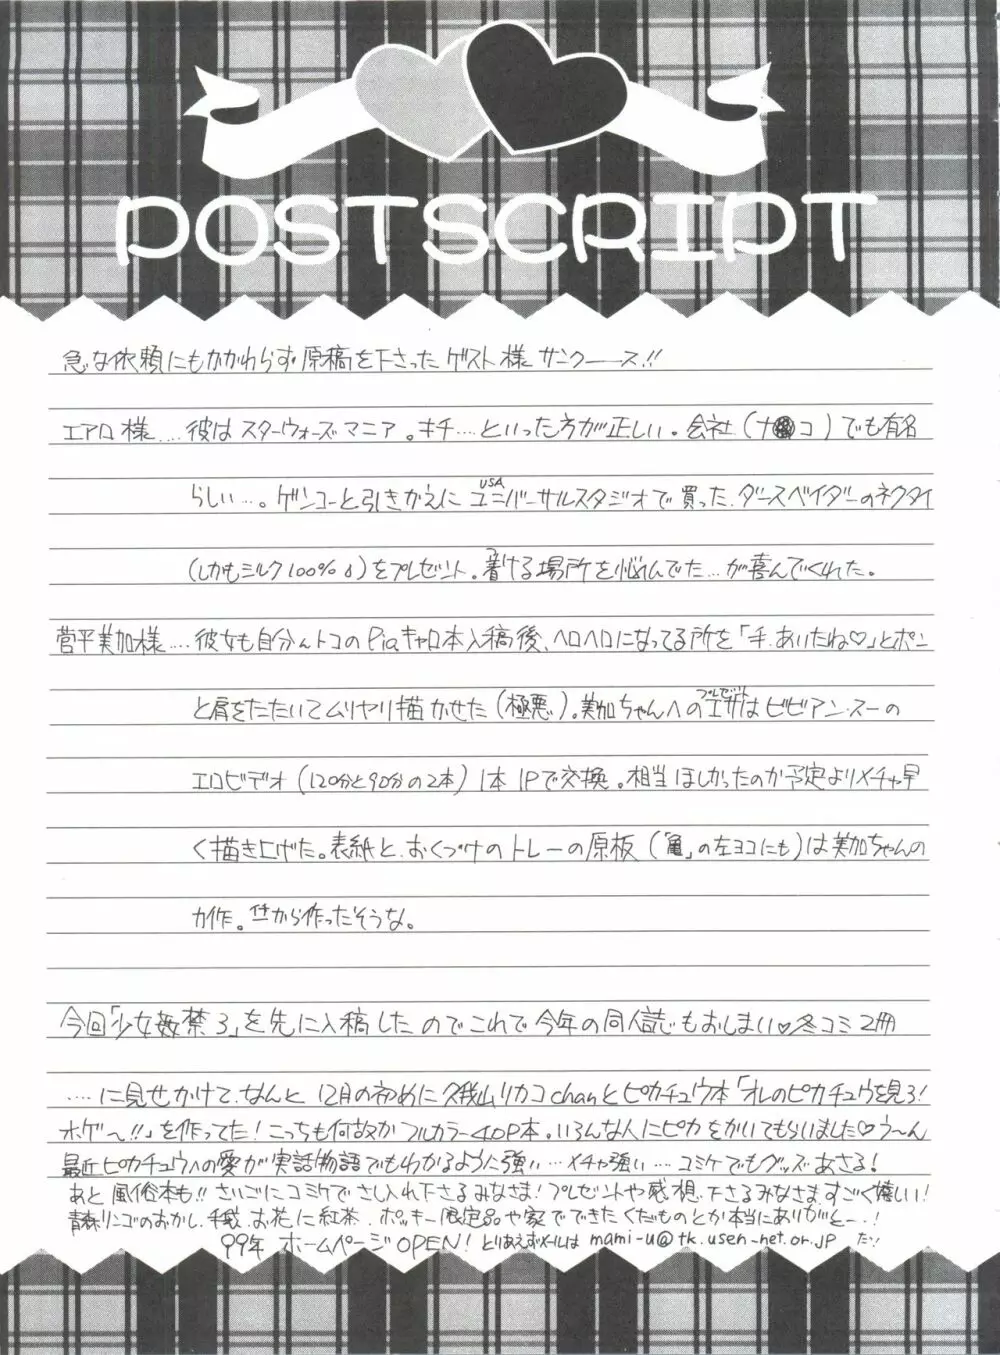 POSTSCRIPT
急な依頼にもかかわらず原稿を下さったゲスト様サンクーース!!
エアロ様‥‥彼はスターウォーズマニア。キチ‥‥といった方が正しい。会社(ナ コ)でも有名
らしい‥‥。ゲンコーと引きかえにUSAユニバーサルスタジオで買った、ダースベイダーのネクタイ
(しかもシルク100%)をプレゼント。着ける場所を悩んでた‥‥が喜んでくれた。
菅平美加様‥‥彼女も自分んトコのPiaキャロ本入稿後、ヘロヘロになってる所を「手、あいたね♡」とポン
と肩をたたいてムリヤリ描かせた(極悪)。美加ちゃんへのエサ(プレゼント)はビビアン・スーの
エロビデオ(120分と90分の2本)1本1Pで交換。相当ほしかったのか予定よりメチャ早
く描き上げた。表紙と、おくづけのトレーの原板(「亀」の左ヨコにも)は美加ちゃんの
力作。 から作ったそうな。
今回「少女姦禁3」を先に入稿したのでこれで今年の同人誌もおしまい♡冬コミ2冊
‥‥に見せかけて、なんと12月の初めに久我山リカコchanとピカチュウ本「オレのピカチュウを見ろ!
ホゲ〜!!」を作ってた!こっちも何故かフルカラー40P本。いろんな人にピカをかいてもらいました♡う〜ん
最近ピカチュウへの愛が実話物語でもわかるように強い‥‥メチャ強い‥‥コミケでもグッズあさる!
あと風俗本も!!さいごにコミケでさし入れ下さるみなさま!プレゼントや感想下さるみなさますごく嬉しい!
青森リンゴのおかし、手紙、お花に紅茶、ポッキー限定品や家でできたくだものとか本当にありがとー!
99年 ホームページOPEN!とりあえずメールは mami-u@tk.usen-net.or.jp だッ!